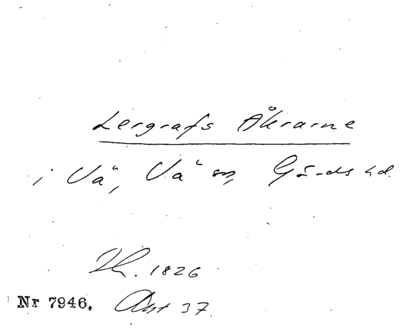 Lergrafs Åkrarne
i Vä, Vä sn, Gärds hd.
Lk. 1826
Nr 7946. Akt 37.